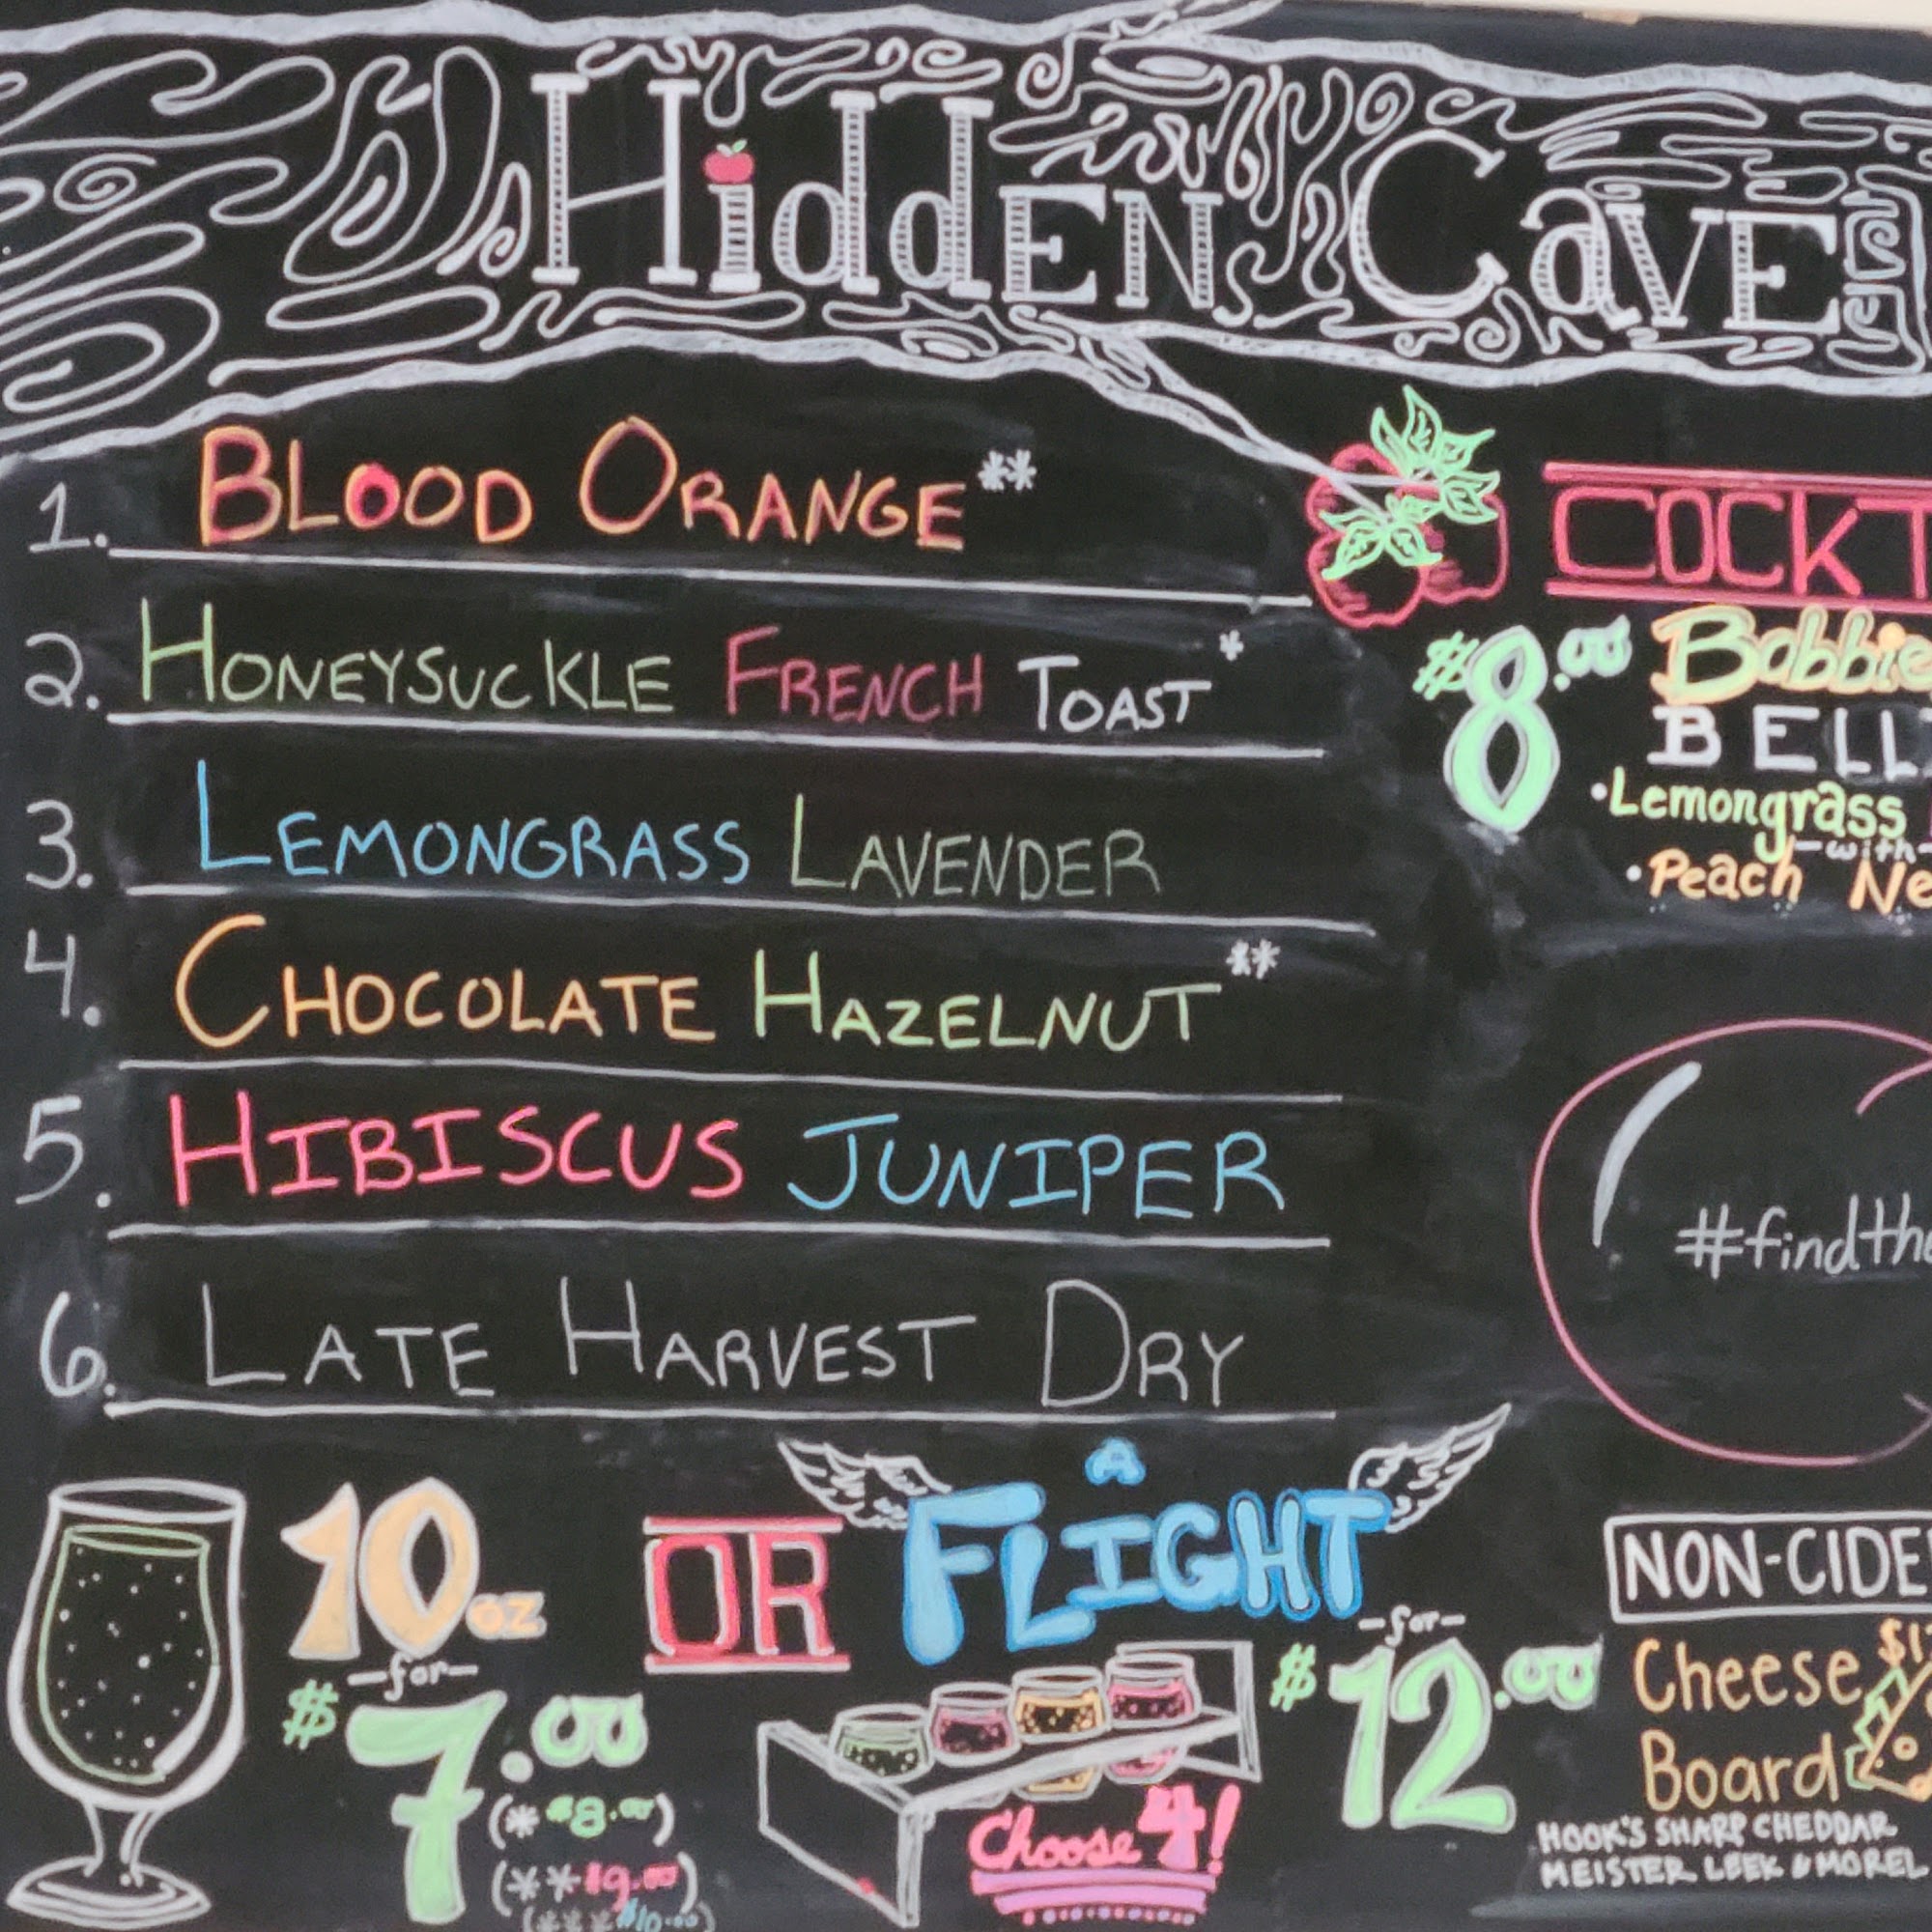 Hidden Cave
1. Blood Orange**
2. Honeysuckle French Toast*
3. Lemongrass Lavender
4. Chocolate Hazelnut**
5. Hibiscus Juniper
6. Late Harvest Dry
10 oz
-for-
$7.00
(*$8.00)
(**$9.00)
(***$10.00)
OR
A
FLIGHT
-for-
$12.00
Choose 4!
COCKT
$8.00 Bobbie
BELL
•Lemongrass
-with-
•Peach Ne
#findthe
NON-CIDE
Cheese $1
Board
HOOK'S SHARP CHEDDAR
MEISTER LEEK & MOREL